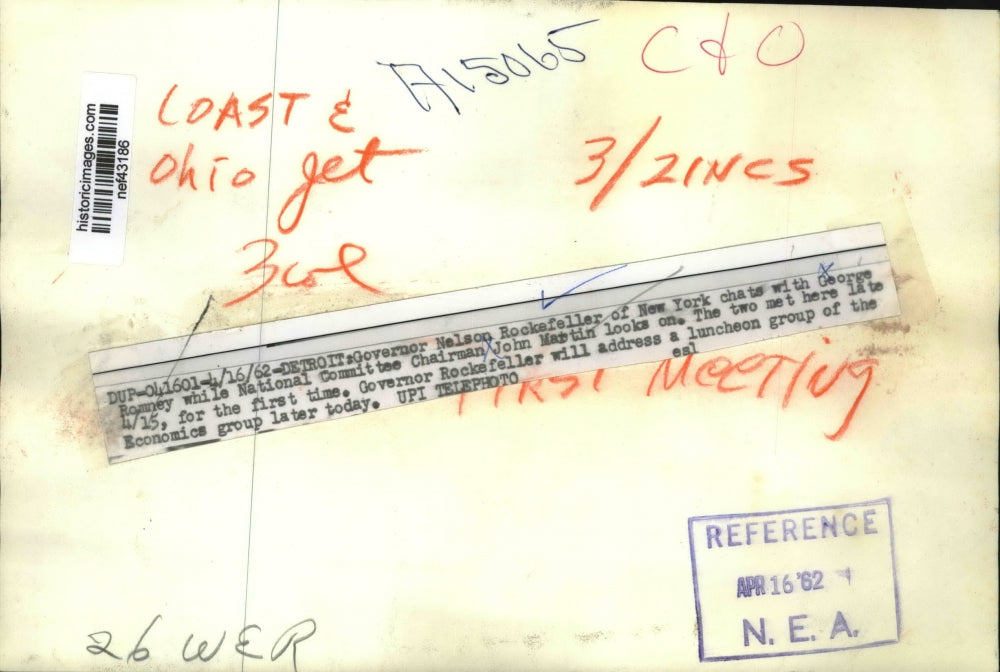 A15065
C & O
historicimages.com
nef43186
COAST &
Ohio jet
3/ZINCS
3 col
DUP-041601-4/16/62-DETROIT:Governor Nelson Rockefeller of New York chats with George
Romney while National Committee Chairman John Martin looks on. The two met here late
4/15, for the first time. Governor Rockefeller will address a luncheon group of the
Economics group later today. UPI TELEPHOTO eal
FIRST MEETING
REFERENCE
APR 16 '62
N. E. A.
26 WER